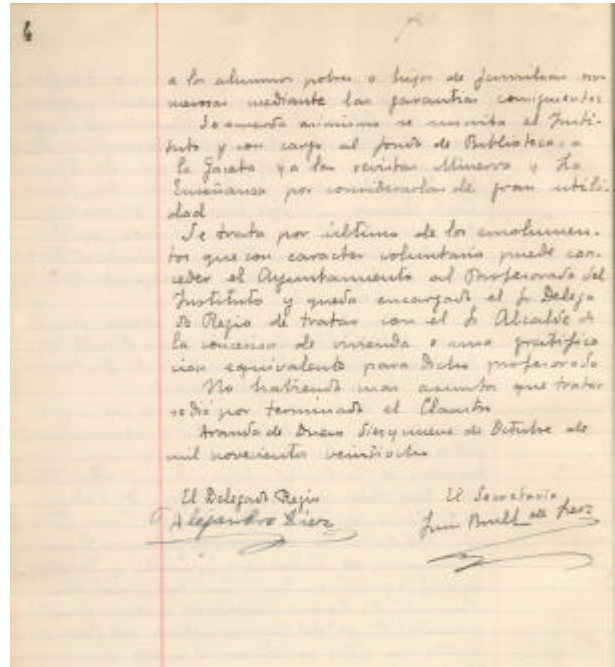 4
a los alumnos pobres o hijos de familias nu
merosas mediante las garantias consiguientes
Se acuerda asimismo se suscriba el Insti-
tuto y con cargo al fondo de Biblioteca, a
la Gaceta y a las revistas Minerva y La
Enseñanza por considerarlas de gran utili-
dad
Se trata por último de los emolumen-
tos que con caracter voluntario puede con-
ceder el Ayuntamiento al Profesorado del
Instituto y queda encargado el Sr Delega
do Regio de tratar con el Sr Alcalde de
la concesion de vivienda o una gratifica
cion equivalente para dicho profesorado
No habiendo mas asuntos que tratar
se dio por terminado el Claustro
Aranda de Duero diez y nueve de Octubre de
mil novecientos veintiocho
El Delegado Regio
El Secretario
Alejandro Diez
Luis de